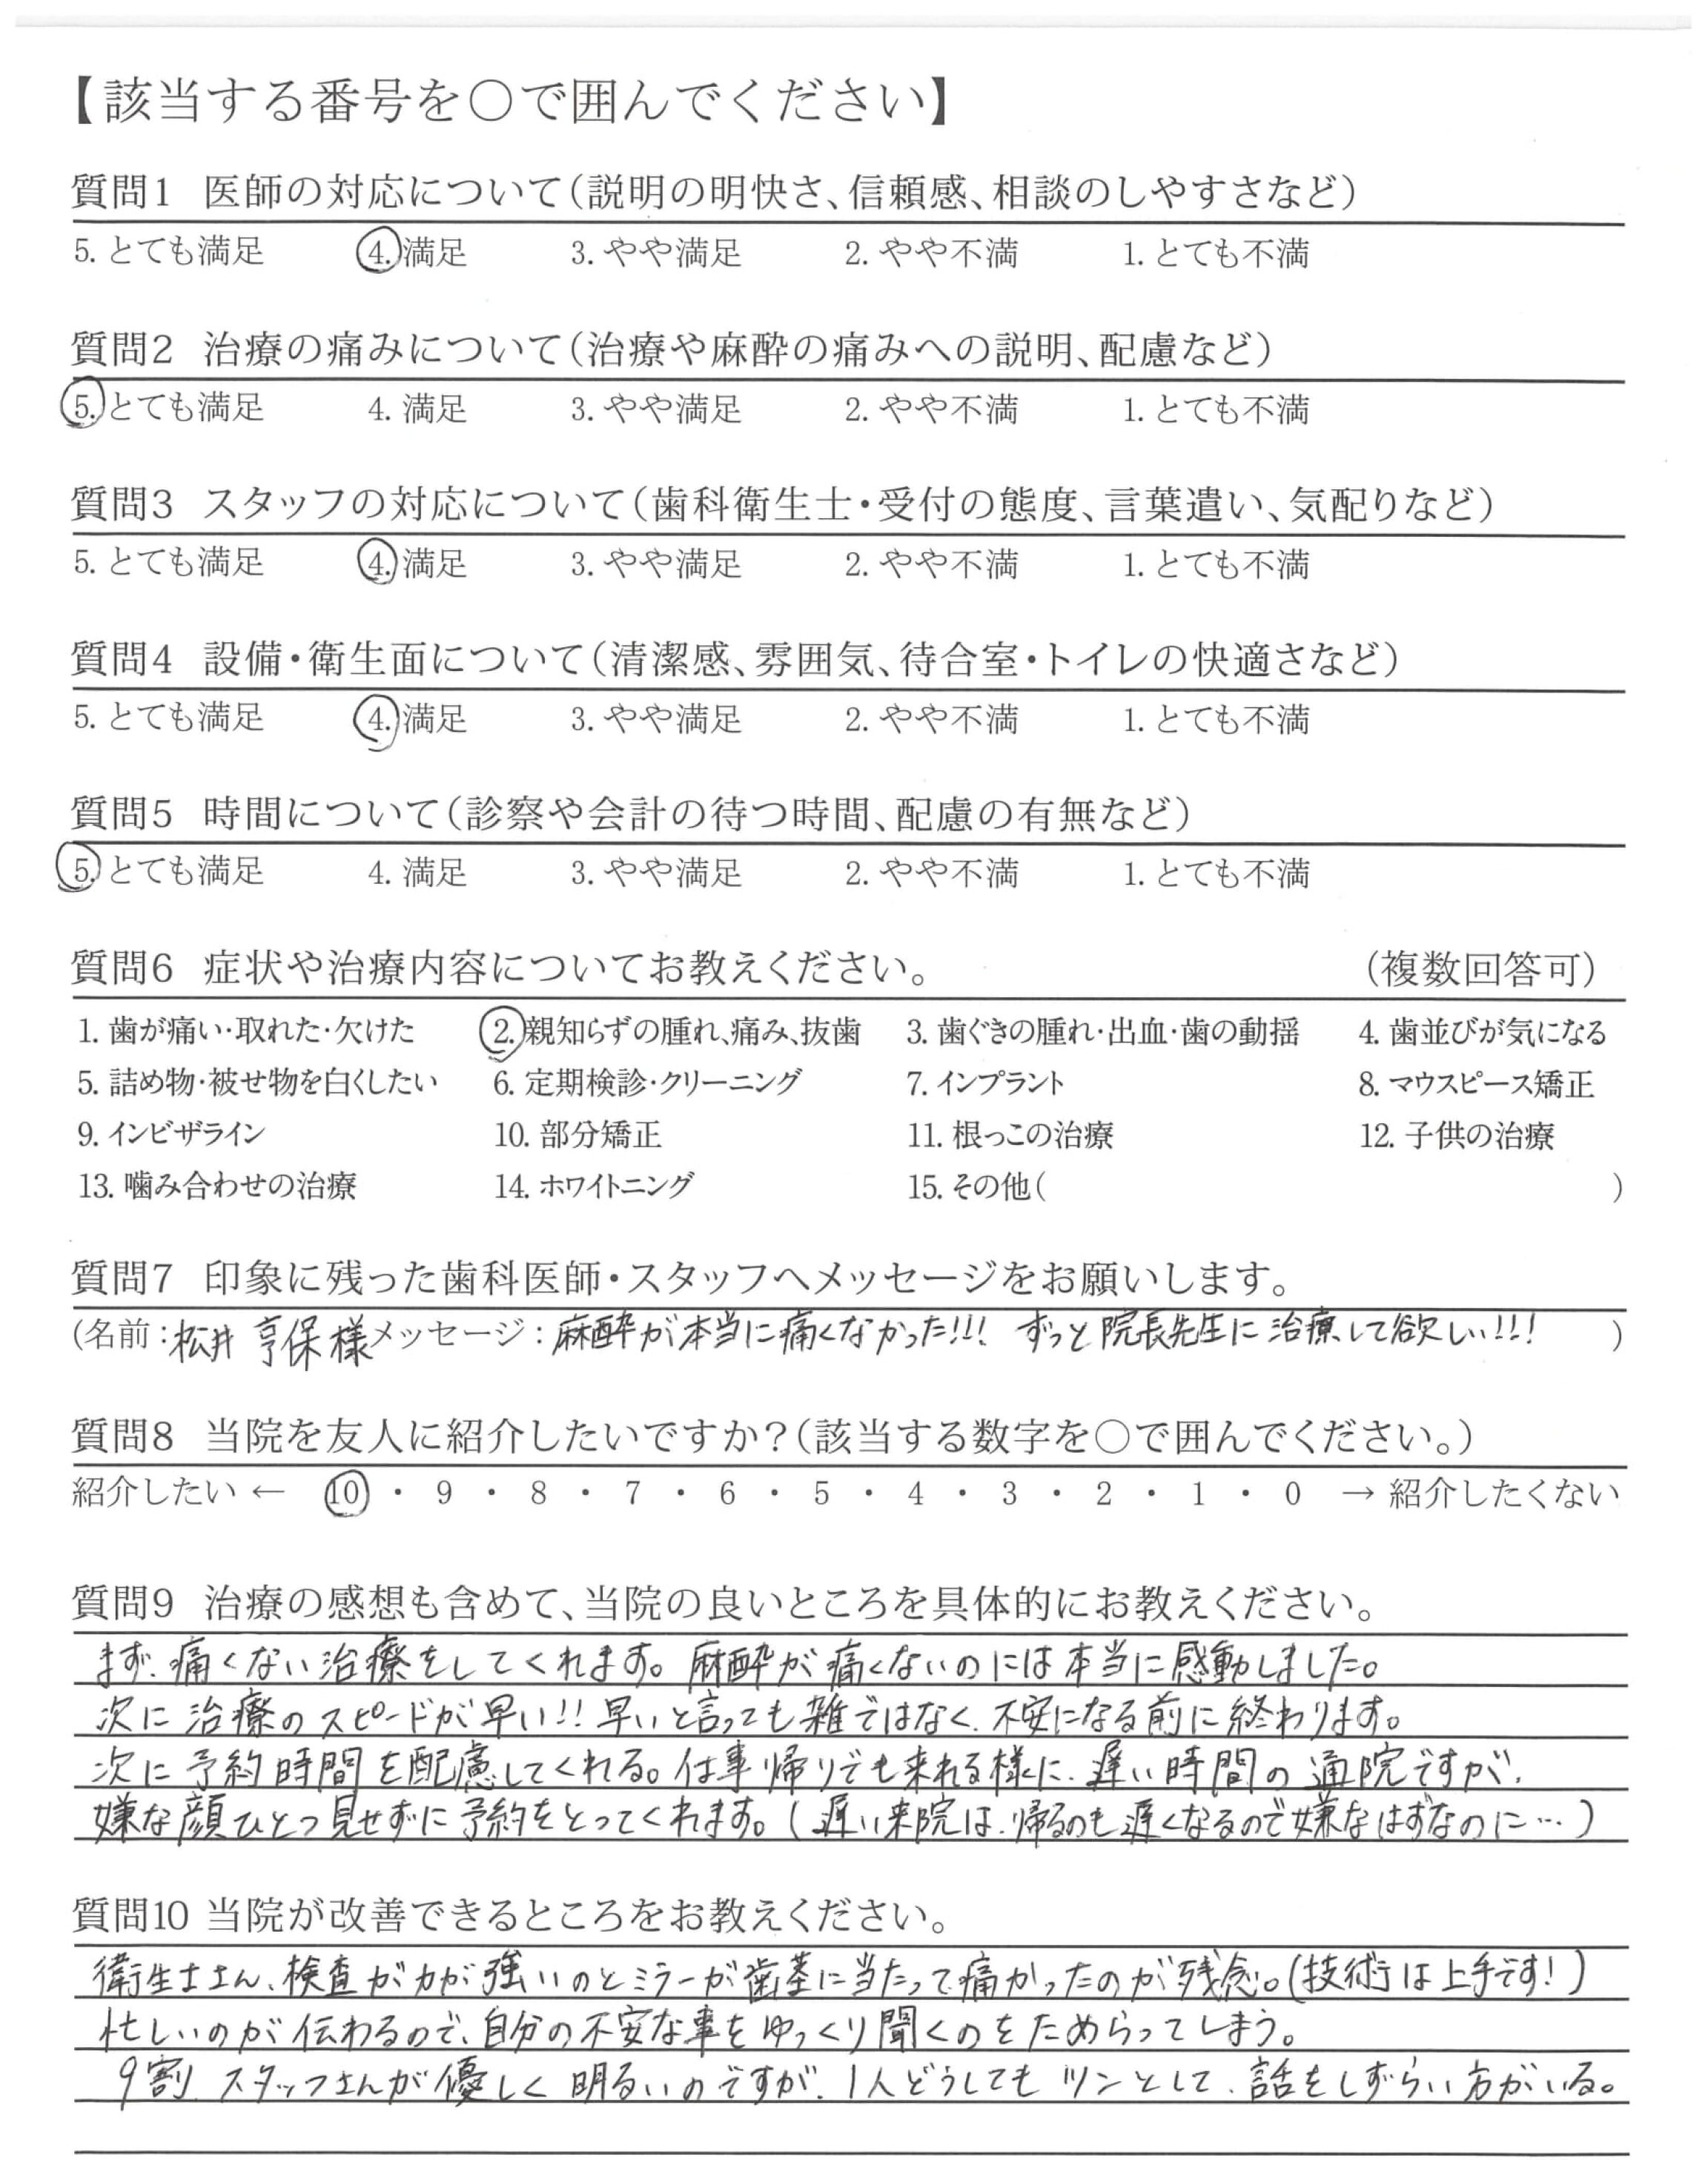 【該当する番号を○で囲んでください】
質問1 医師の対応について(説明の明快さ、信頼感、相談のしやすさなど)
5. とても満足 4. 満足 3. やや満足 2. やや不満 1. とても不満
質問2 治療の痛みについて(治療や麻酔の痛みへの説明、配慮など)
5. とても満足 4. 満足 3. やや満足 2. やや不満 1. とても不満
質問3 スタッフの対応について(歯科衛生士・受付の態度、言葉遣い、気配りなど)
5. とても満足 4. 満足 3. やや満足 2. やや不満 1. とても不満
質問4 設備・衛生面について(清潔感、雰囲気、待合室・トイレの快適さなど)
5. とても満足 4. 満足 3. やや満足 2. やや不満 1. とても不満
質問5 時間について(診察や会計の待つ時間、配慮の有無など)
5. とても満足 4. 満足 3. やや満足 2. やや不満 1. とても不満
質問6 症状や治療内容についてお教えください。 (複数回答可)
1. 歯が痛い・取れた・欠けた 2. 親知らずの腫れ、痛み、抜歯 3. 歯ぐきの腫れ・出血・歯の動揺 4. 歯並びが気になる
5. 詰め物・被せ物を白くしたい 6. 定期検診・クリーニング 7. インプラント 8. マウスピース矯正
9. インビザライン 10. 部分矯正 11. 根っこの治療 12. 子供の治療
13. 噛み合わせの治療 14. ホワイトニング 15. その他( )
質問7 印象に残った歯科医師・スタッフへメッセージをお願いします。
(名前：松井 亨保様 メッセージ：麻酔が本当に痛くなかった!!! ずっと院長先生に治療して欲しい!!! )
質問8 当院を友人に紹介したいですか？(該当する数字を○で囲んでください。)
紹介したい ← 10 ・ 9 ・ 8 ・ 7 ・ 6 ・ 5 ・ 4 ・ 3 ・ 2 ・ 1 ・ 0 → 紹介したくない
質問9 治療の感想も含めて、当院の良いところを具体的にお教えください。
まず、痛くない治療をしてくれます。麻酔が痛くないのには本当に感動しました。
次に治療のスピードが早い!! 早いと言っても雑ではなく、不安になる前に終わります。
次に予約時間を配慮してくれる。仕事帰りでも来れる様に、遅い時間の通院ですが、
嫌な顔ひとつ見せずに予約をとってくれます。(遅い来院は、帰るのも遅くなるので嫌なはずなのに…)
質問10 当院が改善できるところをお教えください。
衛生士さん、検査が力が強いのとミラーが歯茎に当たって痛かったのが残念。(技術は上手です!)
忙しいのが伝わるので、自分の不安な事をゆっくり聞くのをためらってしまう。
9割、スタッフさんが優しく明るいのですが、1人どうしてもツンとして、話をしずらい方がいる。